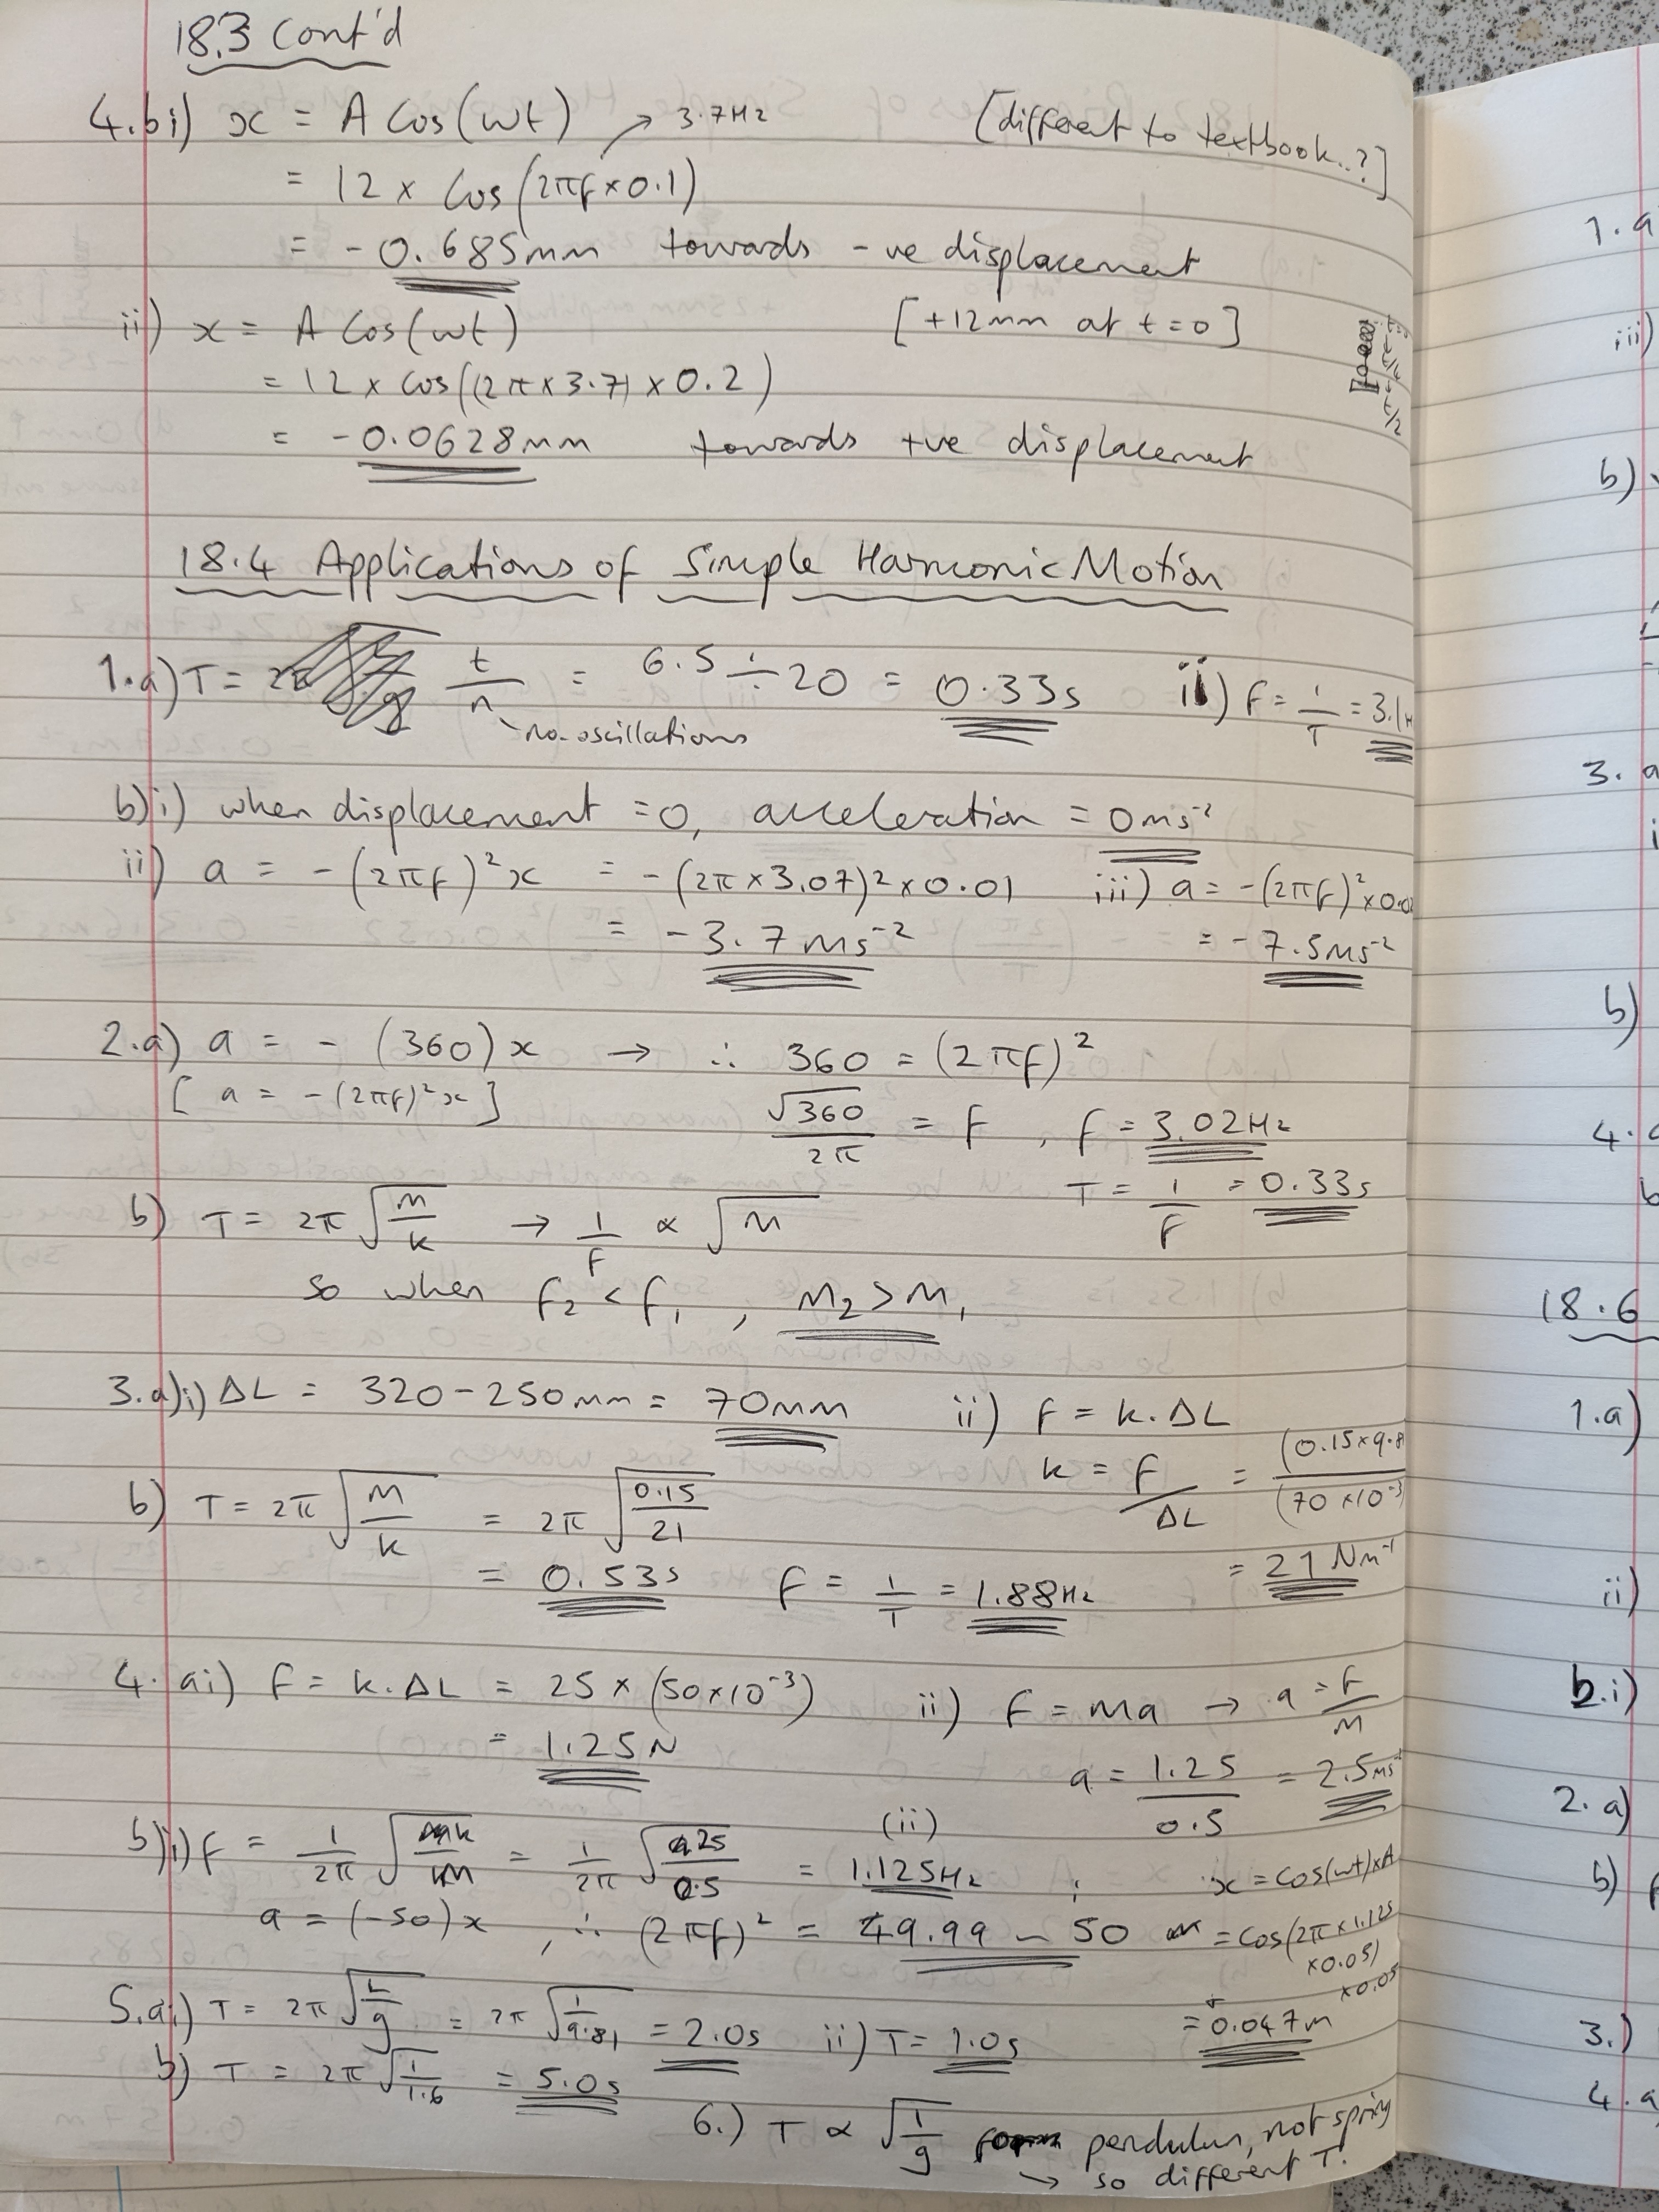 18.3 Cont'd
4.bi) x = A Cos(ωt) → 3.7Hz [different to textbook..?]
= 12 × Cos(2πf × 0.1)
= -0.685mm towards -ve displacement
ii) x = A Cos(ωt) [+12mm at t=0]
= 12 × cos((2π × 3.7) × 0.2)
= -0.0628mm towards +ve displacement
18.4 Applications of Simple Harmonic Motion
1.a) T = t/n = 6.5 ÷ 20 = 0.33s ii) f = 1/T = 3.1H
no. oscillations
b)i) when displacement = 0, acceleration = 0ms⁻²
ii) a = -(2πf)²x = -(2π × 3.07)² × 0.01 iii) a = -(2πf)² × 0.02
= -3.7ms⁻² = -7.5ms⁻²
2.a) a = - (360)x → ∴ 360 = (2πf)²
[a = -(2πf)²x] √360/2π = f, f = 3.02Hz
T = 1/f = 0.33s
b) T = 2π√(m/k) → 1/f ∝ √m
so when f₂ < f₁, m₂ > m₁
3.a)i) ΔL = 320-250mm = 70mm ii) F = k.ΔL
k = F/ΔL = (0.15×9.8/(70×10⁻³
b) T = 2π√(m/k) = 2π√(0.15/21)
= 0.53s f = 1/T = 1.88Hz = 21Nm⁻¹
4. ai) F = k.ΔL = 25 × (50×10⁻³) ii) F = ma → a = F/m
= 1.25N a = 1.25/0.5 = 2.5ms⁻
b)i) f = 1/2π √(k/m) = 1/2π √(25/0.5) = 1.125Hz ; (ii) x = cos(ωt)×A
a = (-50)x, ∴ (2πf)² = 49.99 ~ 50 = cos(2π×1.125
×0.05)
×0.05
= +0.047m
5.ai) T = 2π√(L/g) = 2π√(1/9.81) = 2.0s ii) T = 1.0s
b) T = 2π√(1/1.6) = 5.0s
6.) T ∝ √(1/g) pendulum, not spring
→ so different T.
1.a
iii)
b)
3. a
i
b)
4.
b
18.6
1.a)
ii)
b.i)
2. a)
b)
3.)
4. a